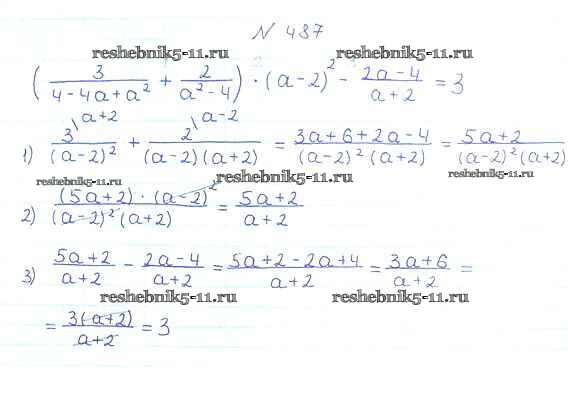 N 487
reshebnik5-11.ru reshebnik5-11.ru
(3/(4-4a+a²) + 2/(a²-4)) · (a-2)² - (2a-4)/(a+2) = 3
1) 3\a+2/(a-2)² + 2\a-2/((a-2)(a+2)) = (3a+6+2a-4)/((a-2)²(a+2)) = (5a+2)/((a-2)²(a+2))
reshebnik5-11.ru reshebnik5-11.ru reshebnik5-11.ru
2) ((5a+2)·(a-2)²)/((a-2)²(a+2)) = (5a+2)/(a+2)
3) (5a+2)/(a+2) - (2a-4)/(a+2) = (5a+2-2a+4)/(a+2) = (3a+6)/(a+2) =
reshebnik5-11.ru reshebnik5-11.ru
= 3(a+2)/(a+2) = 3